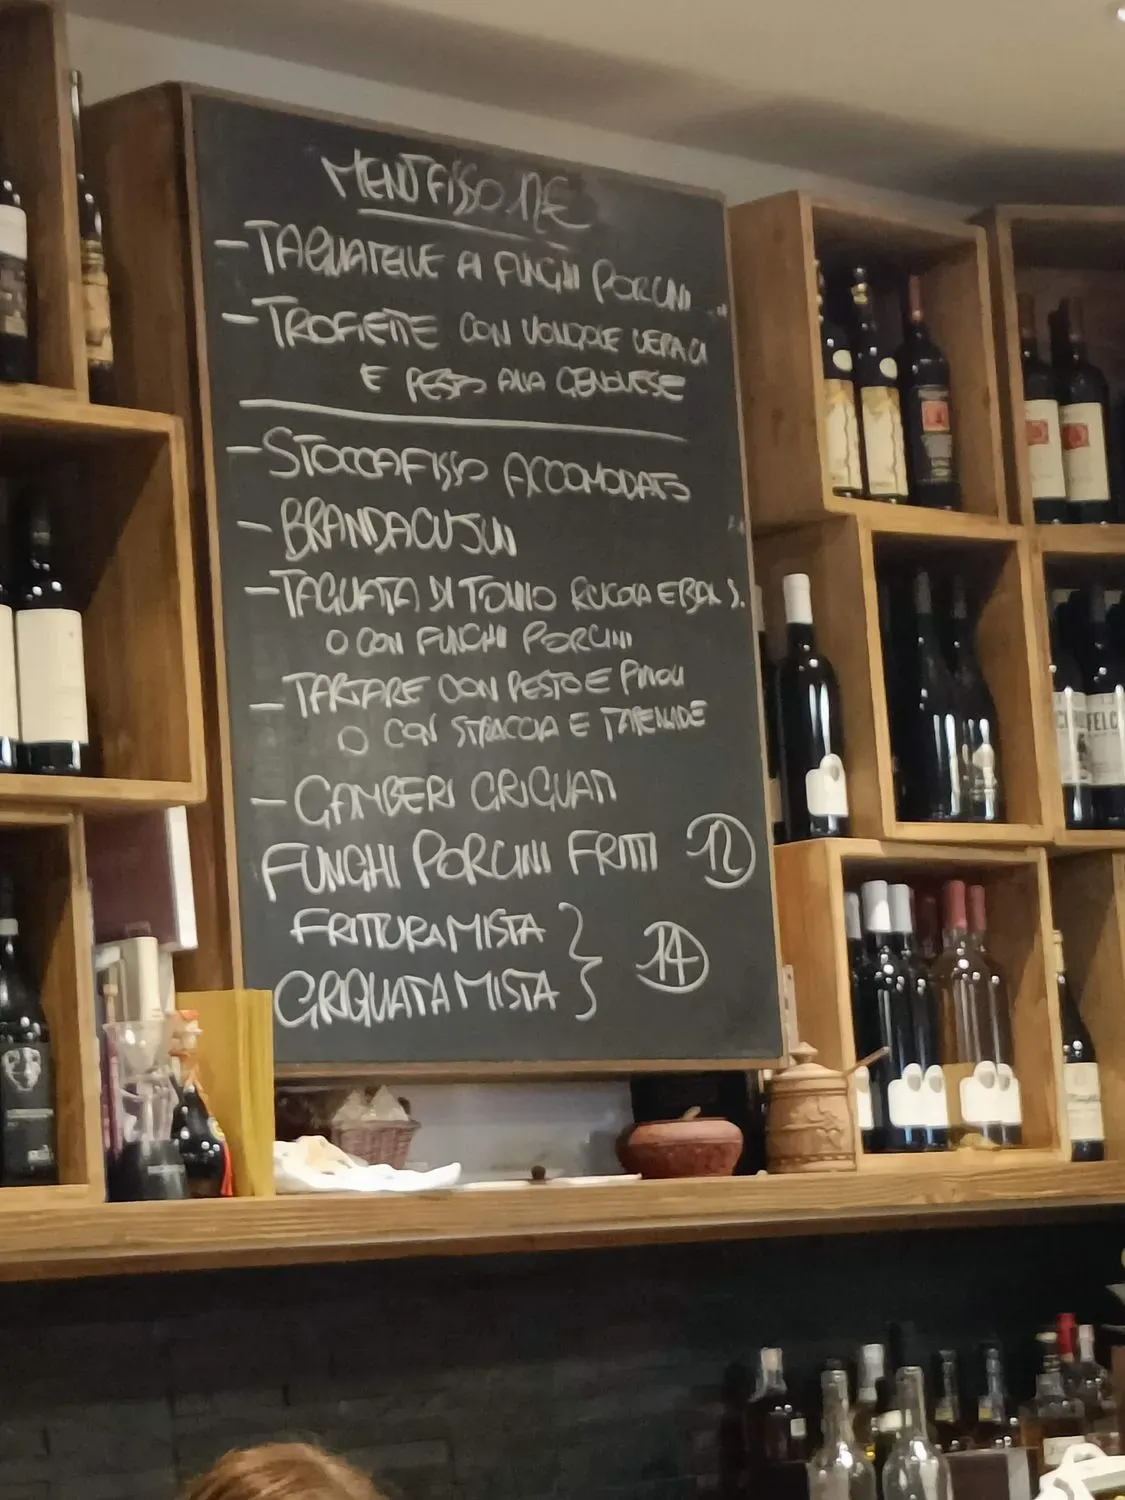 MENÙ FISSO
- TAGLIATELLE AI FUNGHI PORCINI
- TROFIETTE CON VONGOLE VERACI
E PESTO ALLA GENOVESE
- STOCCAFISSO ACCOMODATO
- BRANDACUJUN
- TAGLIATA DI TONNO RUCOLA E BALS.
O CON FUNGHI PORCINI
- TARTARE CON PESTO E PINOLI
O CON E
- GAMBERI GRIGLIATI
FUNGHI PORCINI FRITTI 12
FRITTURA MISTA
GRIGLIATA MISTA } 14
FELC